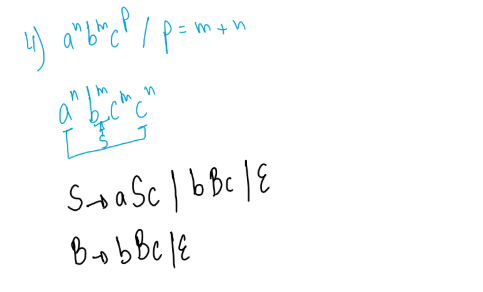 4) aⁿbᵐcᵖ / p = m + n
aⁿbᵐcᵐcⁿ
S
S → aSc | bBc | ε
B → bBc | ε